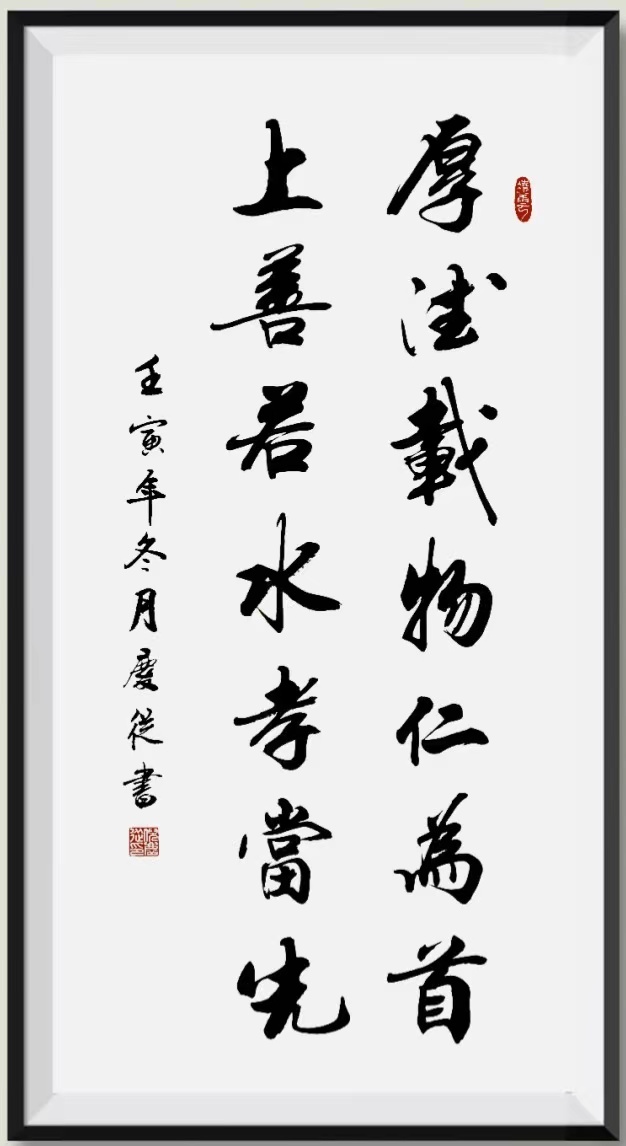 厚德載物仁為首
上善若水孝當先
壬寅年冬月慶從書